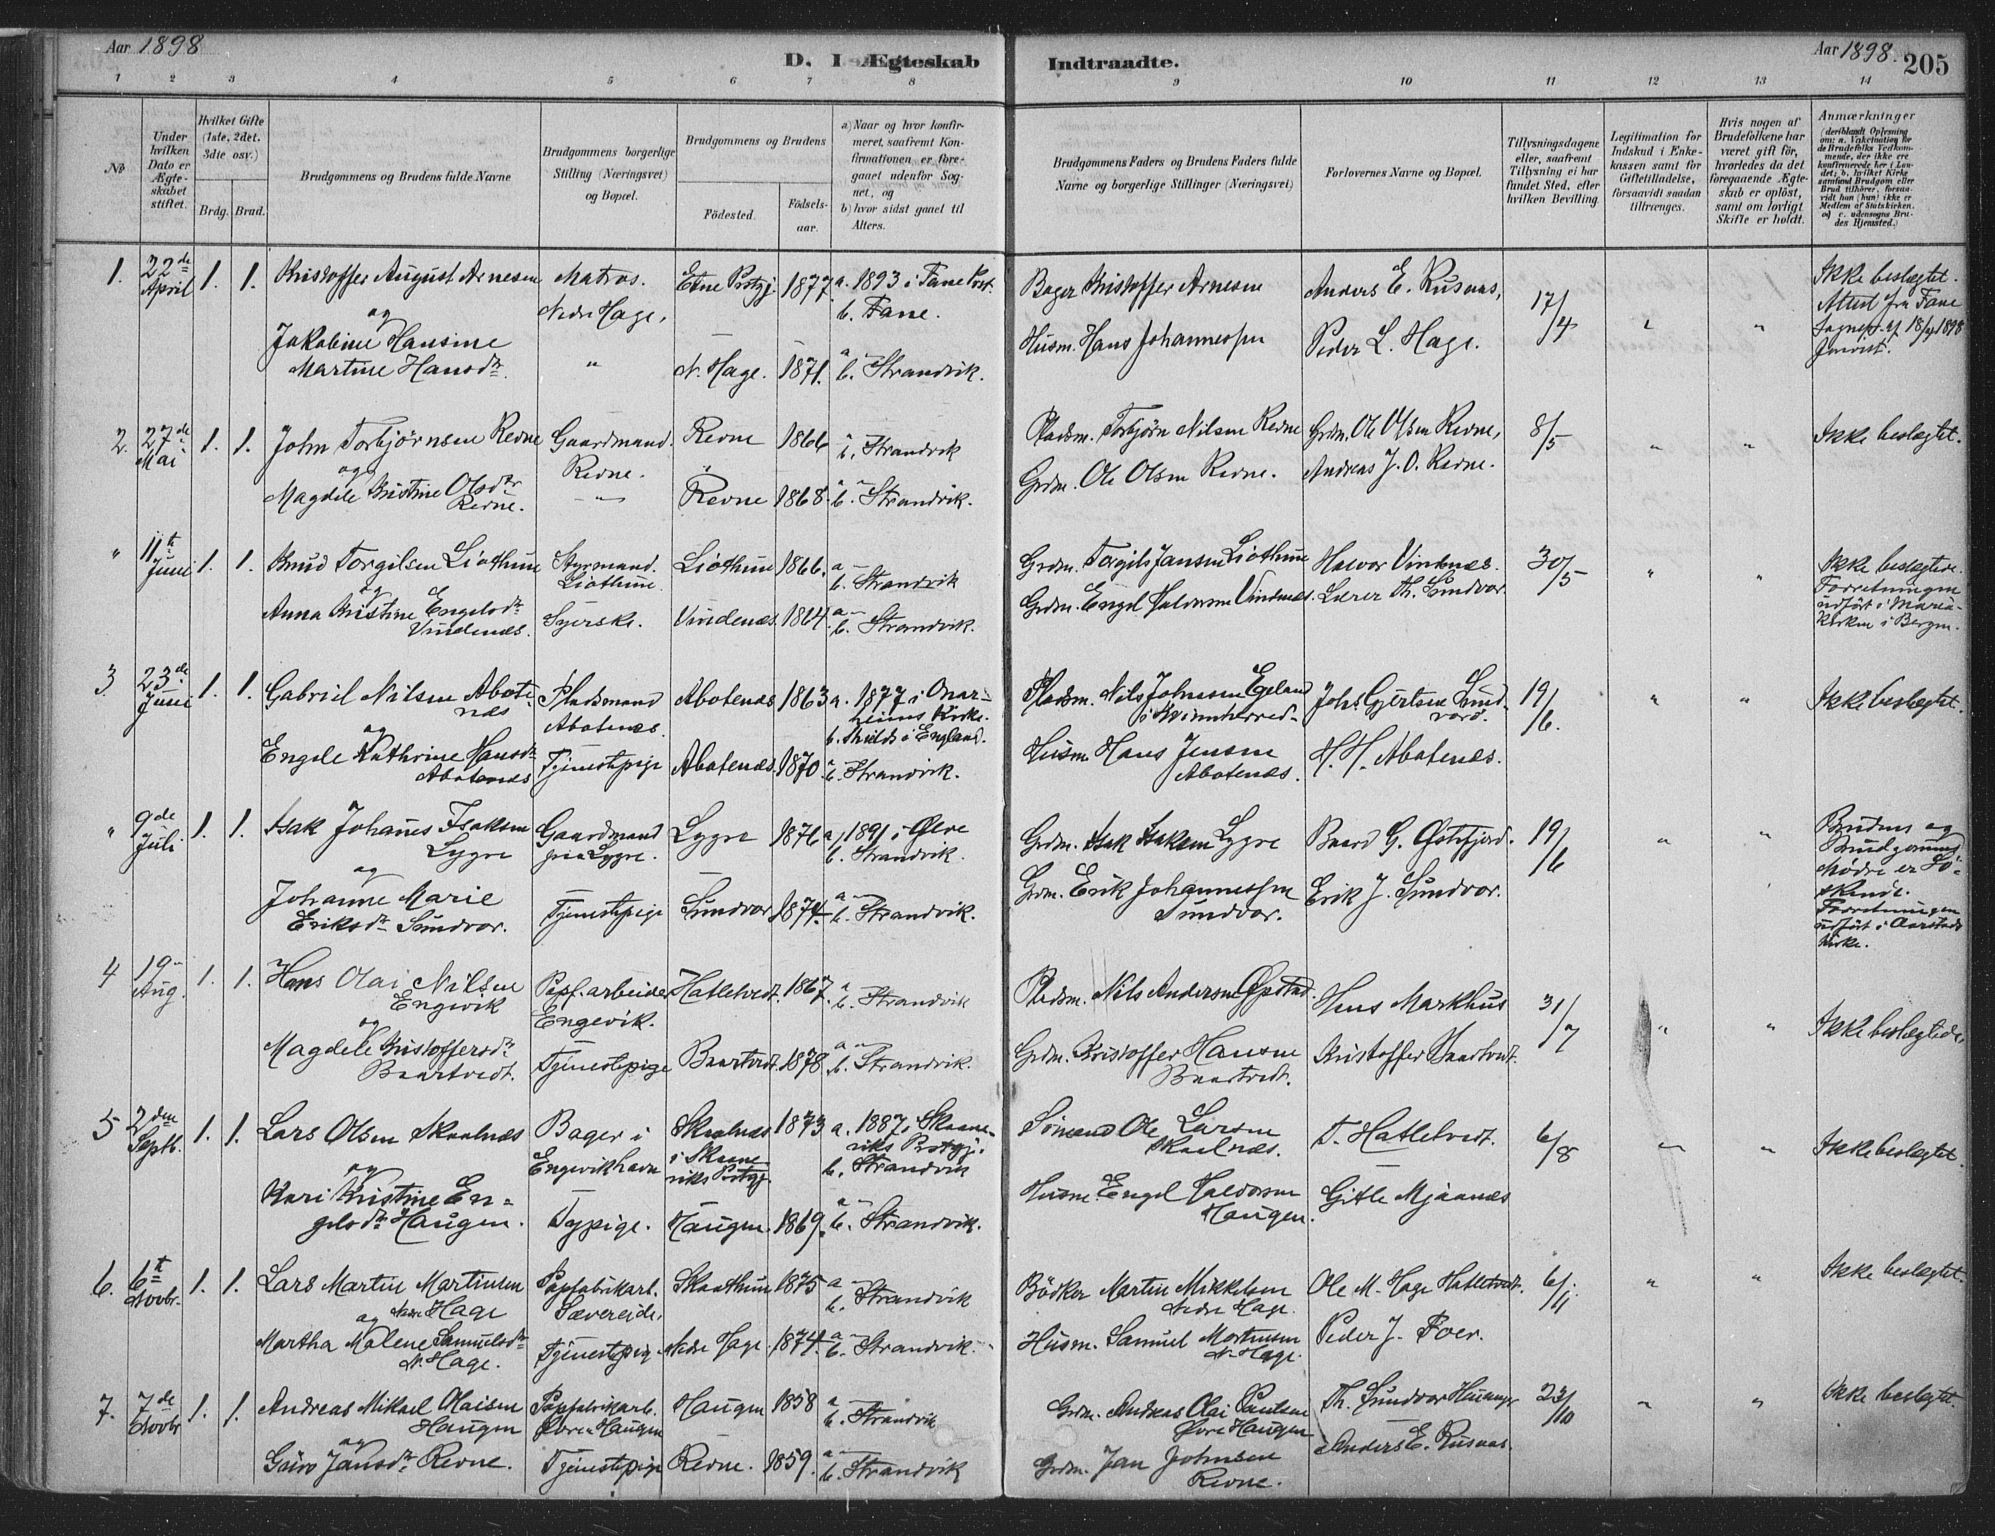 Aar 1898
D. I Ægteskab
Indtraadte.
Aar 1898.
205
1 2 3 4 5 6 7 8 9 10 11 12 13 14
No
Under hvilken Dato er Ægteskabet stiftet.
Hvilket Gifte (1ste, 2det. 3die osv.)
Brdg. Brud.
Brudgommens og Brudens fulde Navne
Brudgommens borgerlige Stilling (Næringsvei) og Bopæl.
Brudgommens og Brudens
Fødested.
Fødselsaar.
a) Naar og hvor konfirmeret, saafremt Konfirmationen er foregaaet udenfor Sognet, og
b) hvor sidst gaaet til Alters.
Brudgommens Faders og Brudens Faders fulde Navne og borgerlige Stillinger (Næringsvei)
Forlovernes Navne og Bopæl.
Tillysningsdagene eller, saafremt Tillysning ei har fundet Sted, efter hvilken Bevilling
Legitimation for Indskud i Enkekassen samt for Giftetilladelse, forsaavidt saadan tiltrænges.
Hvis nogen af Brudefolkene har været gift før, hvorledes da det foregaaende Ægteskab er opløst, samt om lovligt Skifte er holdt.
Anmærkninger
(deriblandt Oplysning om: a. Vakcination for de Brudefolks Vedkommende, der ikke ere konfirmerede her i Landet; b. hvilket Kirkesamfund Brudgom eller Brud tilhører, forsaavidt han (hun) ikke er Medlem af Statskirken. og c. udensogns Brudes Hjemsted.)
1. 22de April 1. 1. Kristoffer August Arnesen Matros. Nedre Hage, Etne Prstgj. 1877. a. 1893 i Fane Prst. b. Fane. Bager Kristoffer Arnesen Anders E. Rusnæs, 17/4 " " Ikke beslægtet. Attest fra Fane Sognep. af 18/4 1898
og
Jakobine Hansine Martine Hansdtr. " N. Hage. 1871. a — b. Strandvik. Husm. Hans Johannessen Peder L. Hage.
2. 27de Mai 1. 1. John Torbjørnsen Revne Gaardmand Revne. Revne 1866 a — b. Strandvik Pladsm. Torbjørn Nilsen Revne Grdm. Ole Olsen Revne, 8/5 " " Ikke beslægtet.
og
Magdele Kristine Olsdtr Revne. — Revne 1868. a — b. Strandvik. Grdm. Ole Olsen Revne. Andreas J. O. Revne.
" 11te Juni 1. 1. Knud Torgilsen Liothun Styrmand. Liothun. Liothun 1866. a — b. Strandvik Grdm. Torgils Jansen Liothun Halvor Vindenæs. 30/5 " " Ikke beslægtede. Forretningen udført i Mariakirken i Bergen.
og
Anna Kristine Engelsdtr Vindenæs. Syerske. Vindenæs. 1864. a — b. Strandvik. Grdm. Engel Haldorsen Vindenæs. Lærer Th. Sundvor.
3. 23de Juni 1. 1. Gabriel Nilsen Abotenæs Pladsmand Abotenæs. Abotenæs 1863 a. 1877 i Onarheims Kirke. b. Shields i England. Pladsm. Nils Johnsen Egeland i Kvinnherred Johs. Gjertsen Sundvord. 19/6. " " Ikke beslægtet.
og
Engele Kathrine Hansdtr Abotenæs Tjenestepige Abotenæs. 1870 a — b. Strandvik. Husm. Hans Jensen Abotenæs. H. H. Abotenæs.
" 9de Juli 1. 1. Isak Johanes Isaksen Lygre Gaardmand Lygre. Lygre 1876 a. 1891 i Ølve b. Strandvik. Grdm. Isak Isaksen Lygre Baard G. Østefjord. 19/6 " " Brudens og Brudgommens Mødre er Søskende. Forretningen udført i Aarstads Kirke.
og
Johanne Marie Eriksdtr Sundvor. Tjenestepige Sundvor 1874. a — b. Strandvik. Grdm. Erik Johannessen Sundvor. Erik J. Sundvor.
4 19 Aug. 1. 1. Hans Olai Nilsen Engevik Papf.arbeider Engevik. Hatletvedt. 1867. a — b. Strandvik Pladsm. Nils Andersen Øpstad. Hans Markhus 31/7 " " Ikke beslægtede.
og
Magdele Kristoffersdtr Baartvedt. Tjenestepige Baartvedt. 1878 a — b. Strandvik. Grdm. Kristoffer Hansen Baartvedt. Kristoffer Baartvedt.
5 2den Septb. 1. 1. Lars Olsen Skaalnæs Bager i Engevikhavn Skaalnæs i Skaaneviks Prstgj. 1873 a. 1887 i Skaaneviks Prstgj. b. Strandvik Sømand Ole Larsen Skaalnæs. T. Hatletvedt. 6/8 " " Ikke beslægtet.
og
Kari Kristine Engelsdtr Haugen. Typige. Haugen. 1869. a — b. Strandvik. Husm Engel Haldorsen Haugen. Gitle Mjaanæs
6. 6te Novbr. 1. 1. Lars Martin Martinsen Nedre Hage Papfabrikarb. Sævereide, Skaathun 1875 a — b. Strandvik Bødker Martin Mikkelsen Nedre Hage. Ole M. Hage Hatletvedt. 6/11. " " Ikke beslægtet.
og
Martha Malene Samuelsdtr N. Hage. Tjenestepig. Nedre Hage 1874. a — b. Strandvik. Husm. Samuel Mortensen N. Hage. Peder J. Foer.
7. 7de Novbr 1. 1. Andreas Mikael Olaisen Haugen Papfabrikarb. Øvre Haugen Haugen 1858 a — b. Strandvik Grdm. Andreas Olai Paulsen Øvre Haugen Th. Sundvor 23/10 " " Ikke beslægtet.
og
Jansdtr Revne. Tjenestepige Revne. 1859. a — b. Strandvik Grdm. Jan Johnsen Revne. Anders E. Rusnæs.